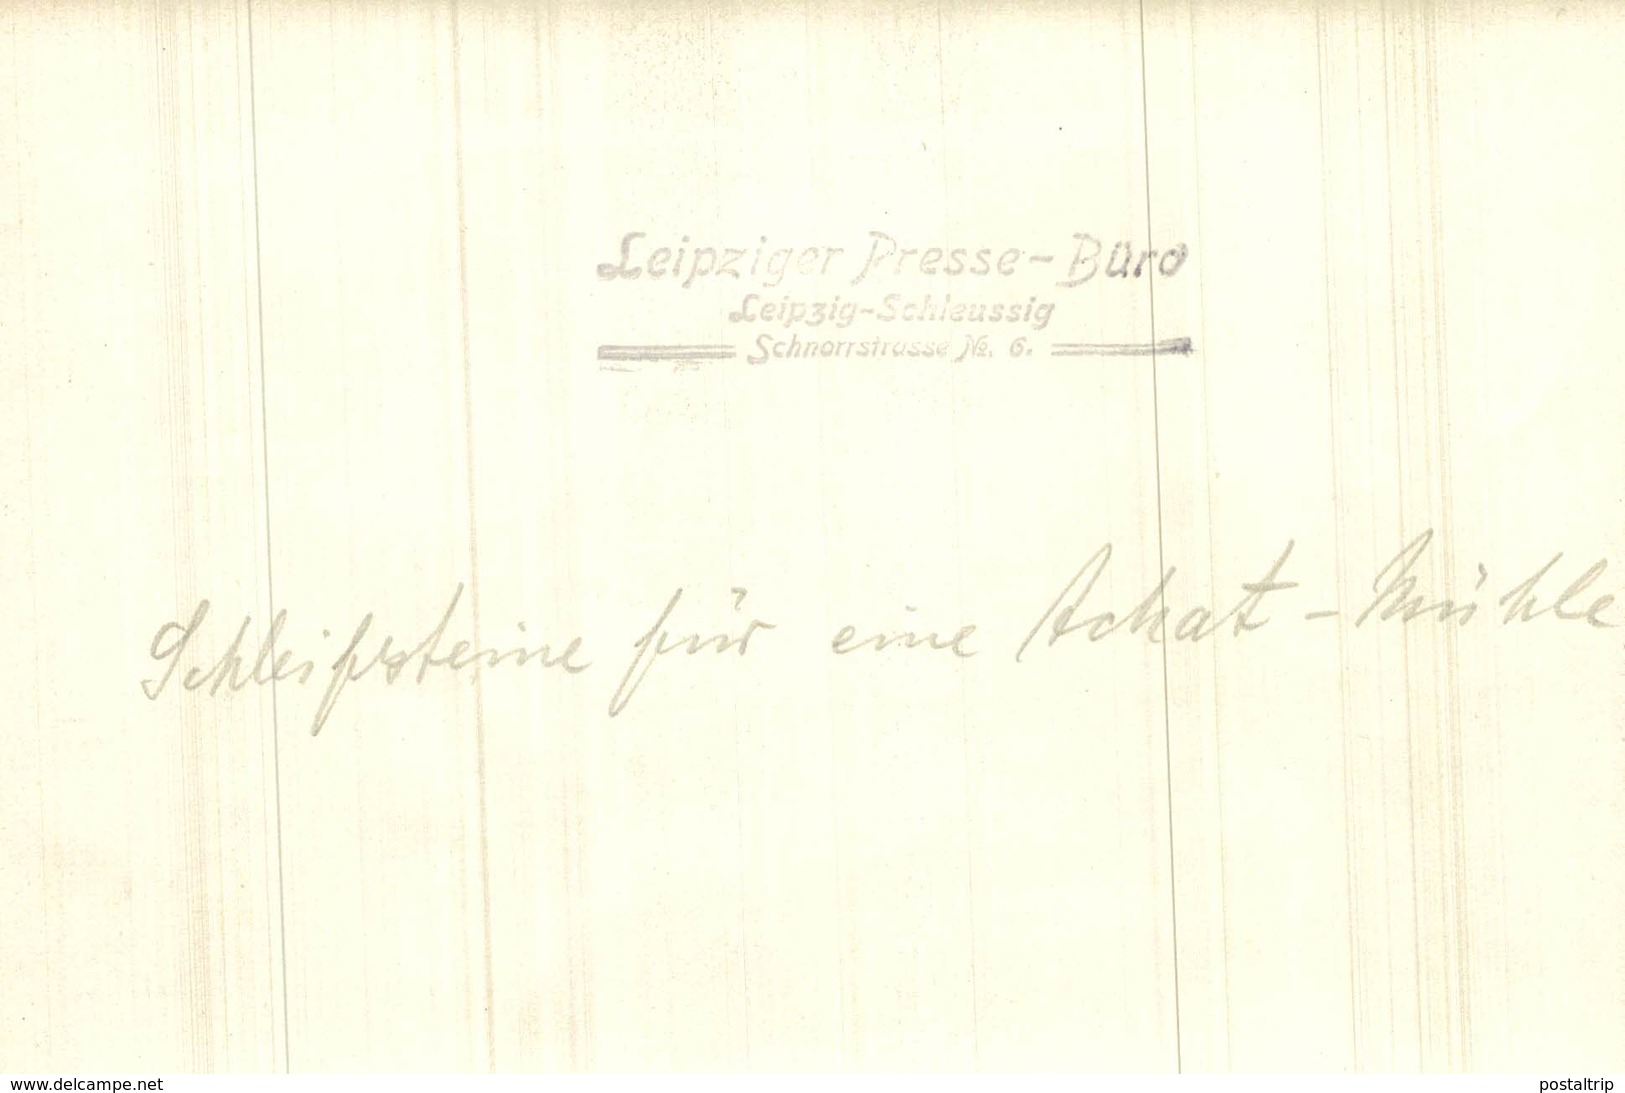 Leipziger Presse-Büro
Leipzig-Schleussig
Schnorrstrasse No. 6.
Schleifsteine für eine Achat-Mühle
www.delcampe.net
postaltrip